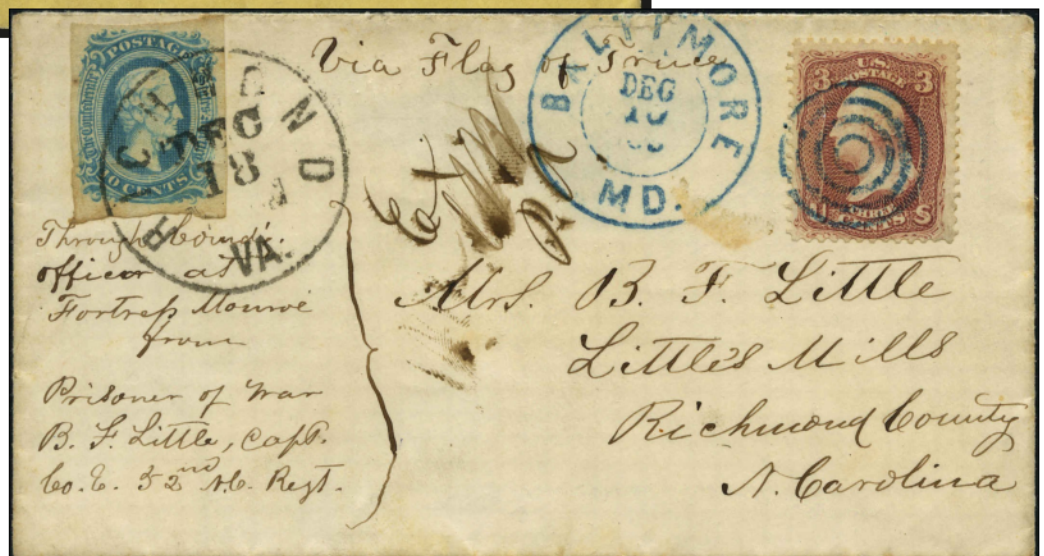 POSTAGE
The Confederate
CENTS
RICHMOND
DEC
18
VA.
Via Flag of Truce
BALTIMORE
DEC
MD.
U.S.
POSTAGE
3 3
THREE
CENTS
Ex
Through Comd'.
officer at
Fortress Monroe
from
Prisoner of War
B. F. Little, Capt.
Co. E. 52nd N.C. Regt.
Mrs. B. F. Little
Little's Mills
Richmond County
N. Carolina